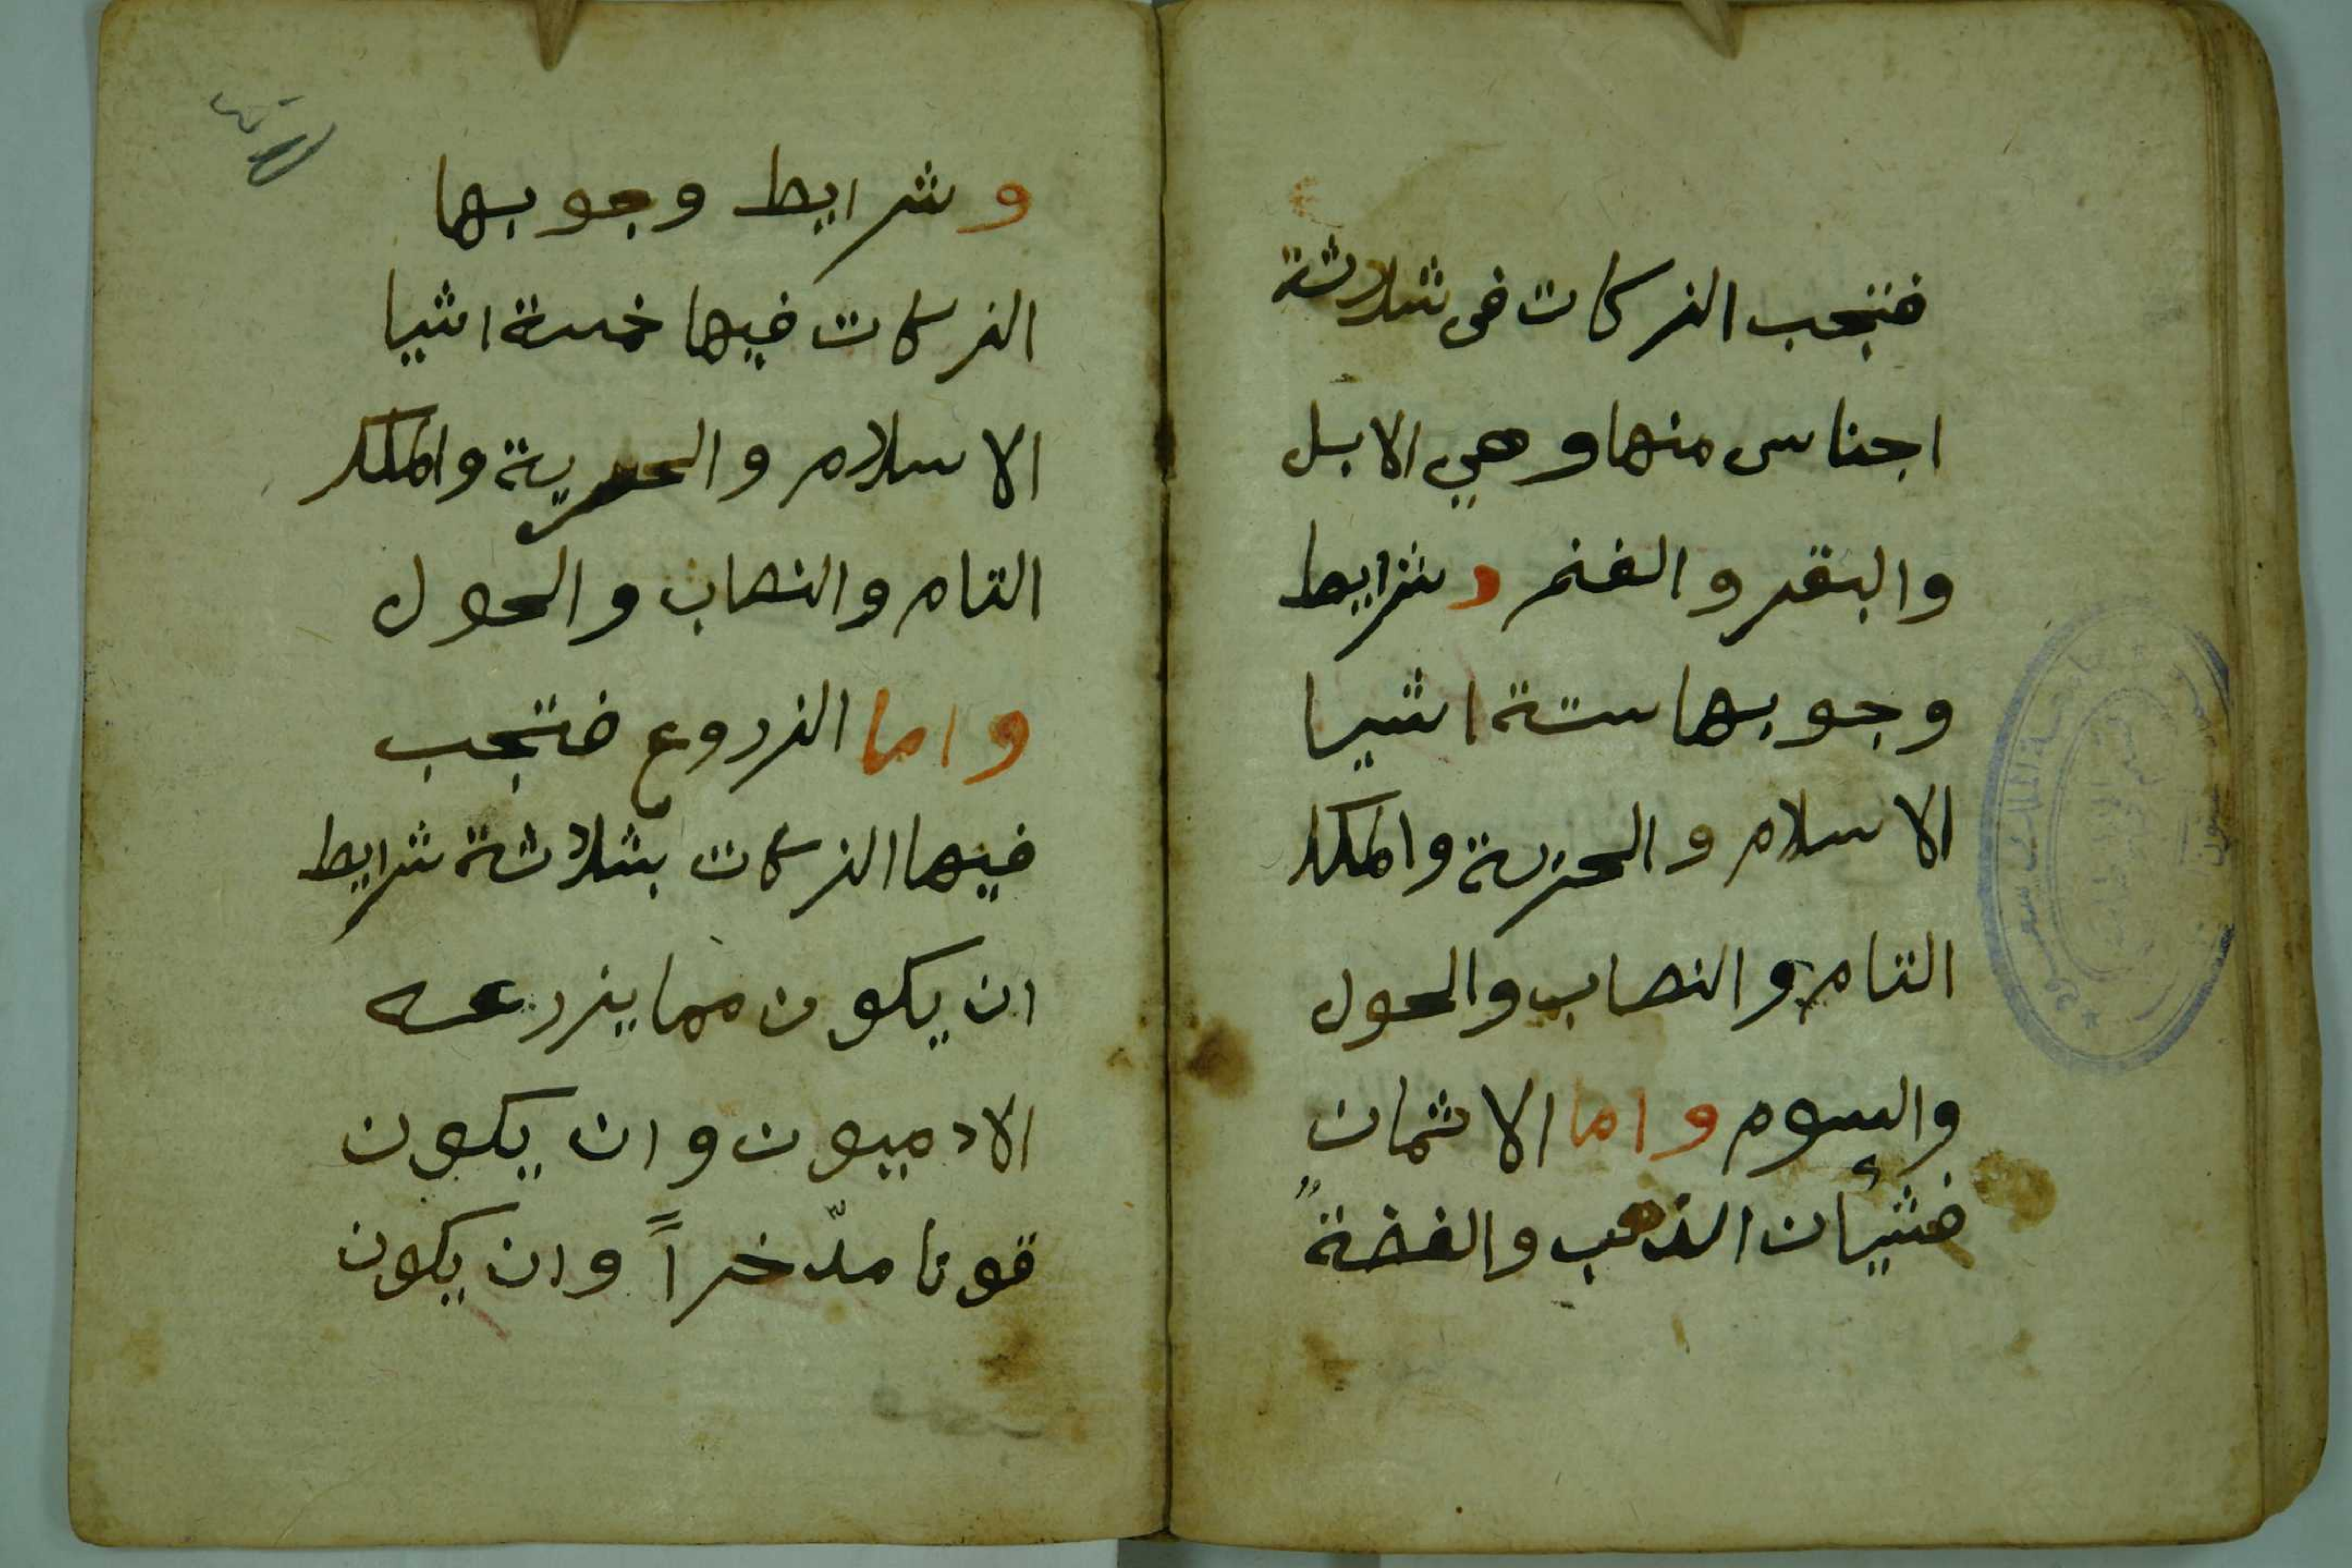 فتجب الزكات في ثلاثة
اجناس منها وهي الابل
والبقر والغنم وشرايط
وجوبها ستة اشيا
الاسلام والحرية والملك
التام والنصاب والحول
والسوم واما الاثمان
فشيأن الذهب والفضة
وشرايط وجوبها
الزكات فيها خمسة اشيا
الاسلام والحرية والملك
التام والنصاب والحول
واما الزروع فتجب
فيها الزكات بثلاثة شرايط
ان يكون مما يزرعه
الادميون وان يكون
قوتا مدّخراً وان يكون